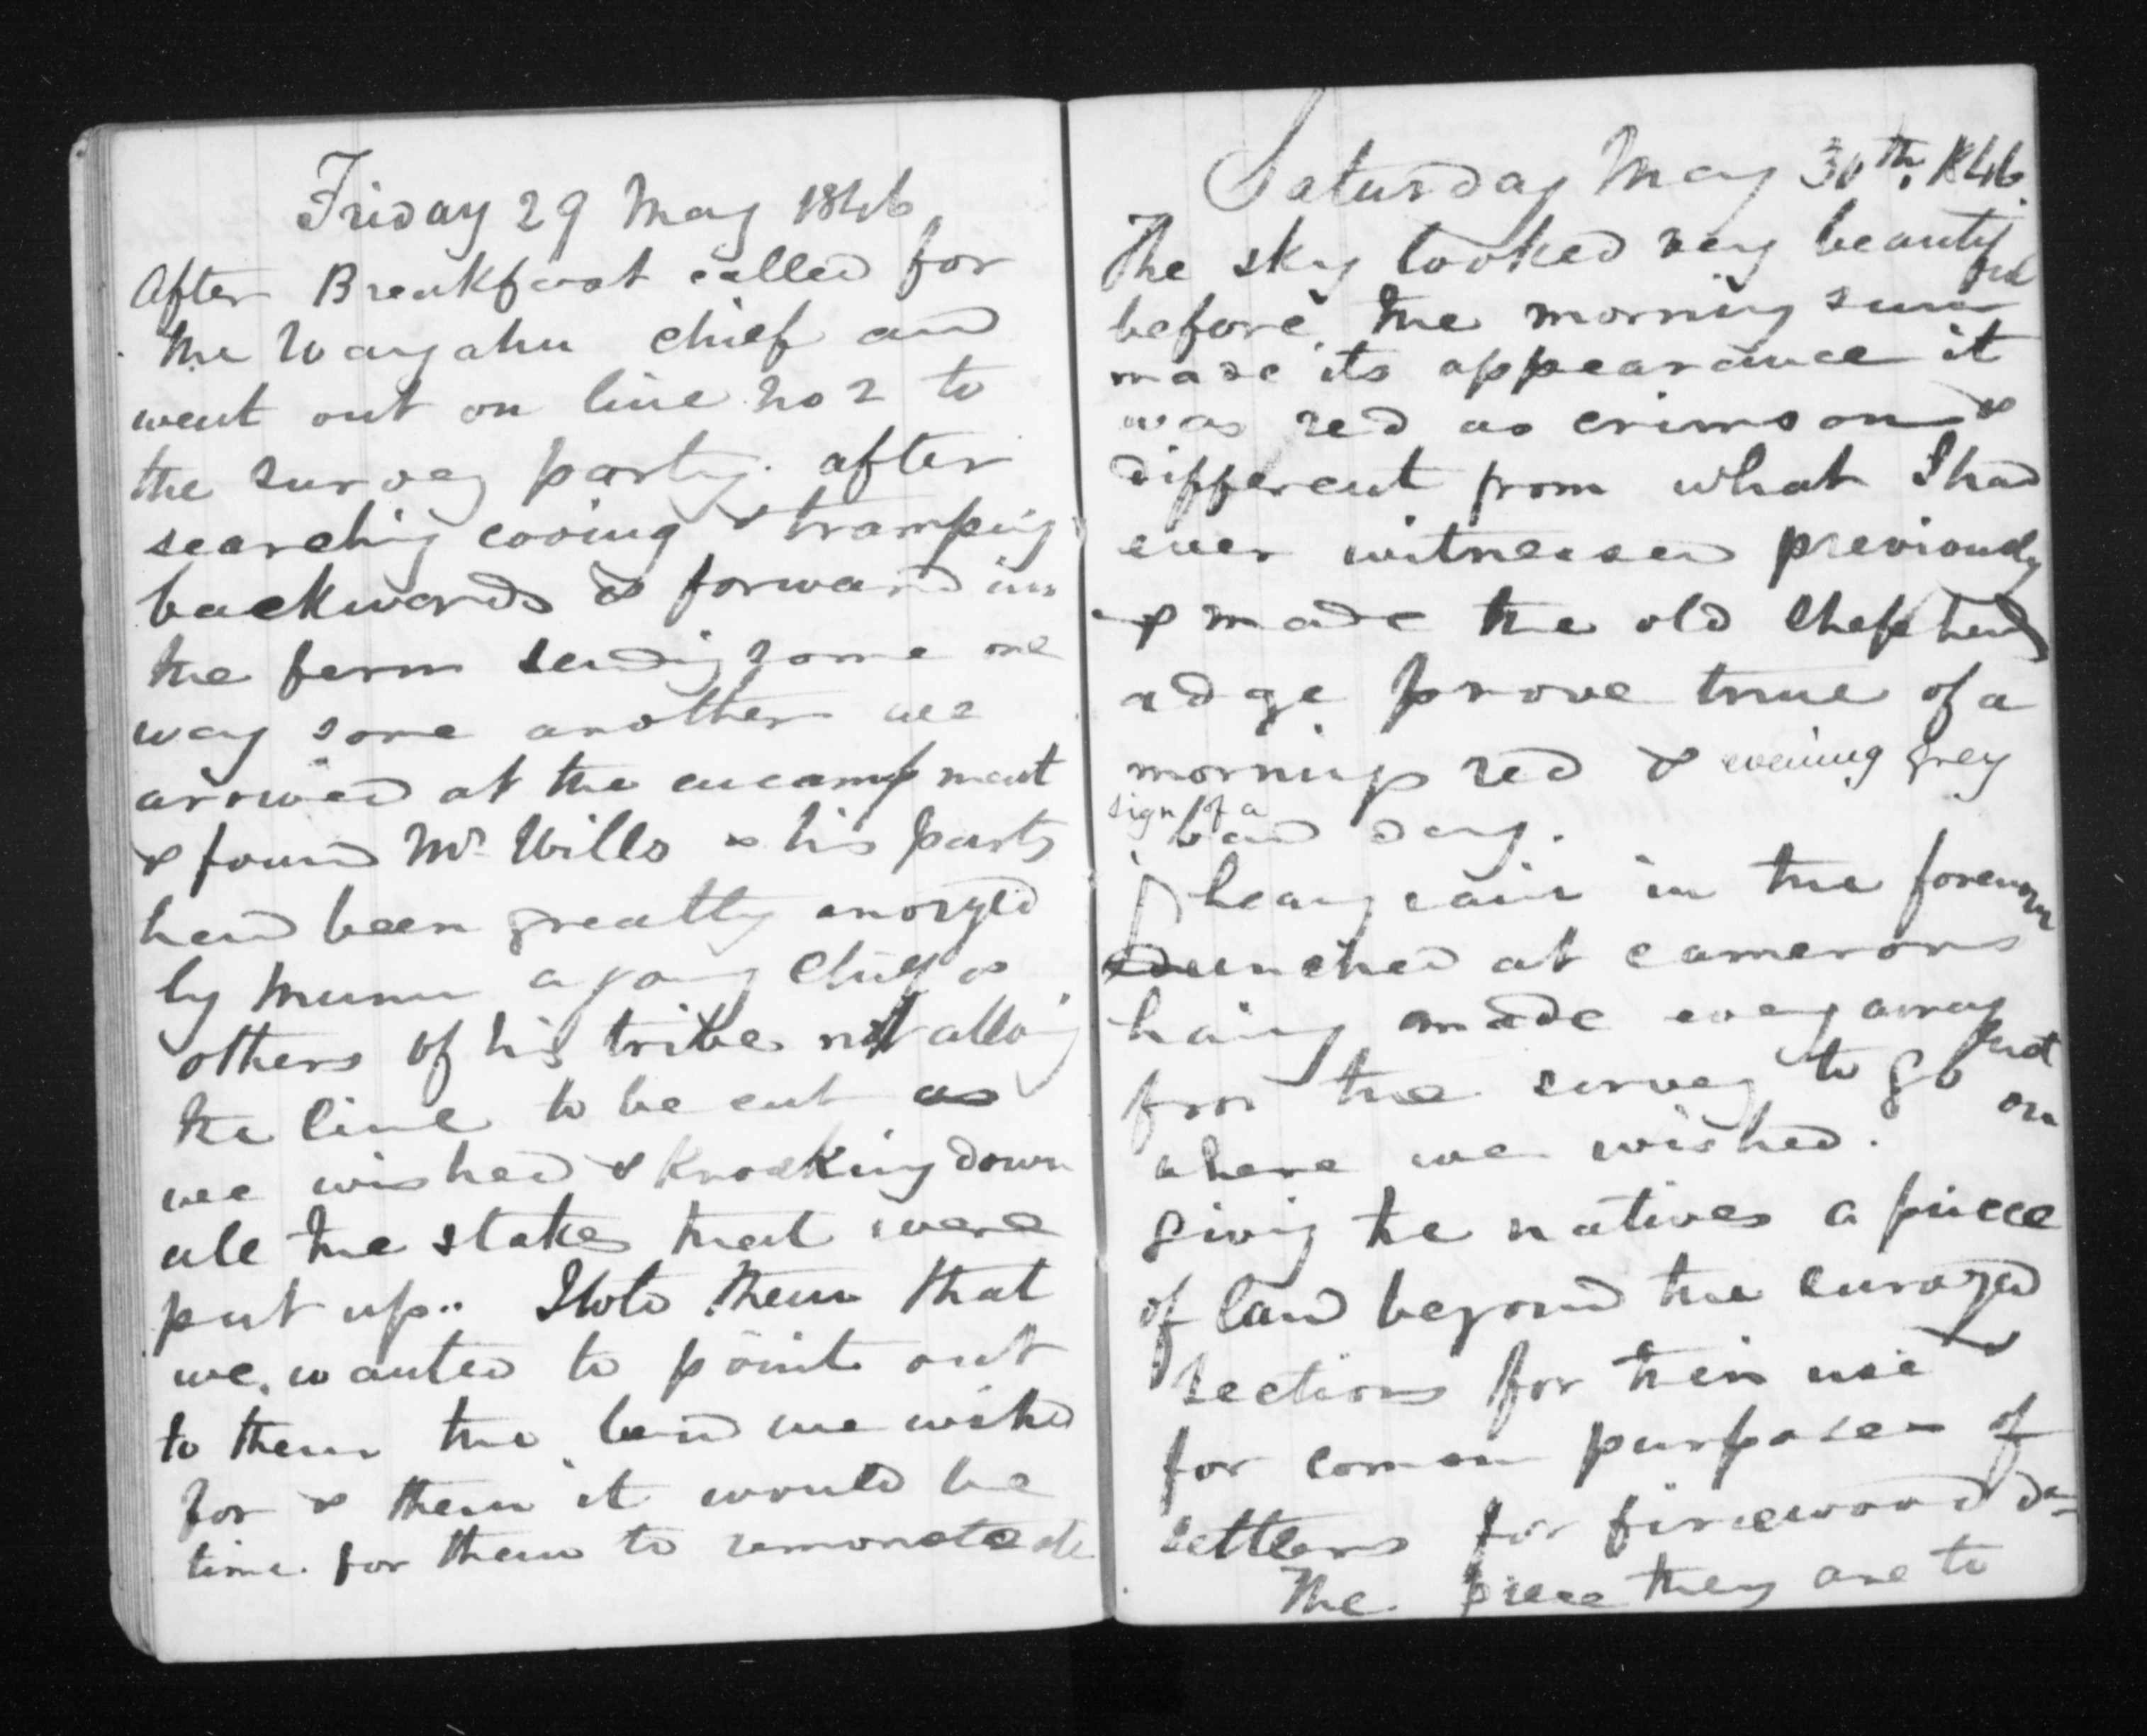 Friday 29 May 1846
After Breakfast called for
the Waryahu chief and
went out on line No 2 to
the survey party. after
searching cooing & tramping
backwards & forward in
the fern sending some one
way some another we
arrived at the encampment
& found Mr Wills & his party
had been greatly anoyed
by Munu a young Chief &
others of his tribe not allowing
the line to be cut as
we wished & knocking down
all the stakes that were
put up.. I told them that
we wanted to point out
to them the land we wished
for & then it would be
time for them to remonstrate
Saturday May 30th. 1846.
The sky looked very beautiful
before the morning sun
made its appearance it
was red as crimson &
different from what I had
ever witnessed previously
& made the old shepherds
adge prove true of a
morning red & evening grey
sign of a bad day.
heavy rain in the forenoon
Lunched at Camerons
having made every arrangement
for the survey to go on
where we wished.
giving the natives a piece
of land beyond the surveyed
sections for their use &
for common purposes of
settlers for firewood &c
The piece they are to